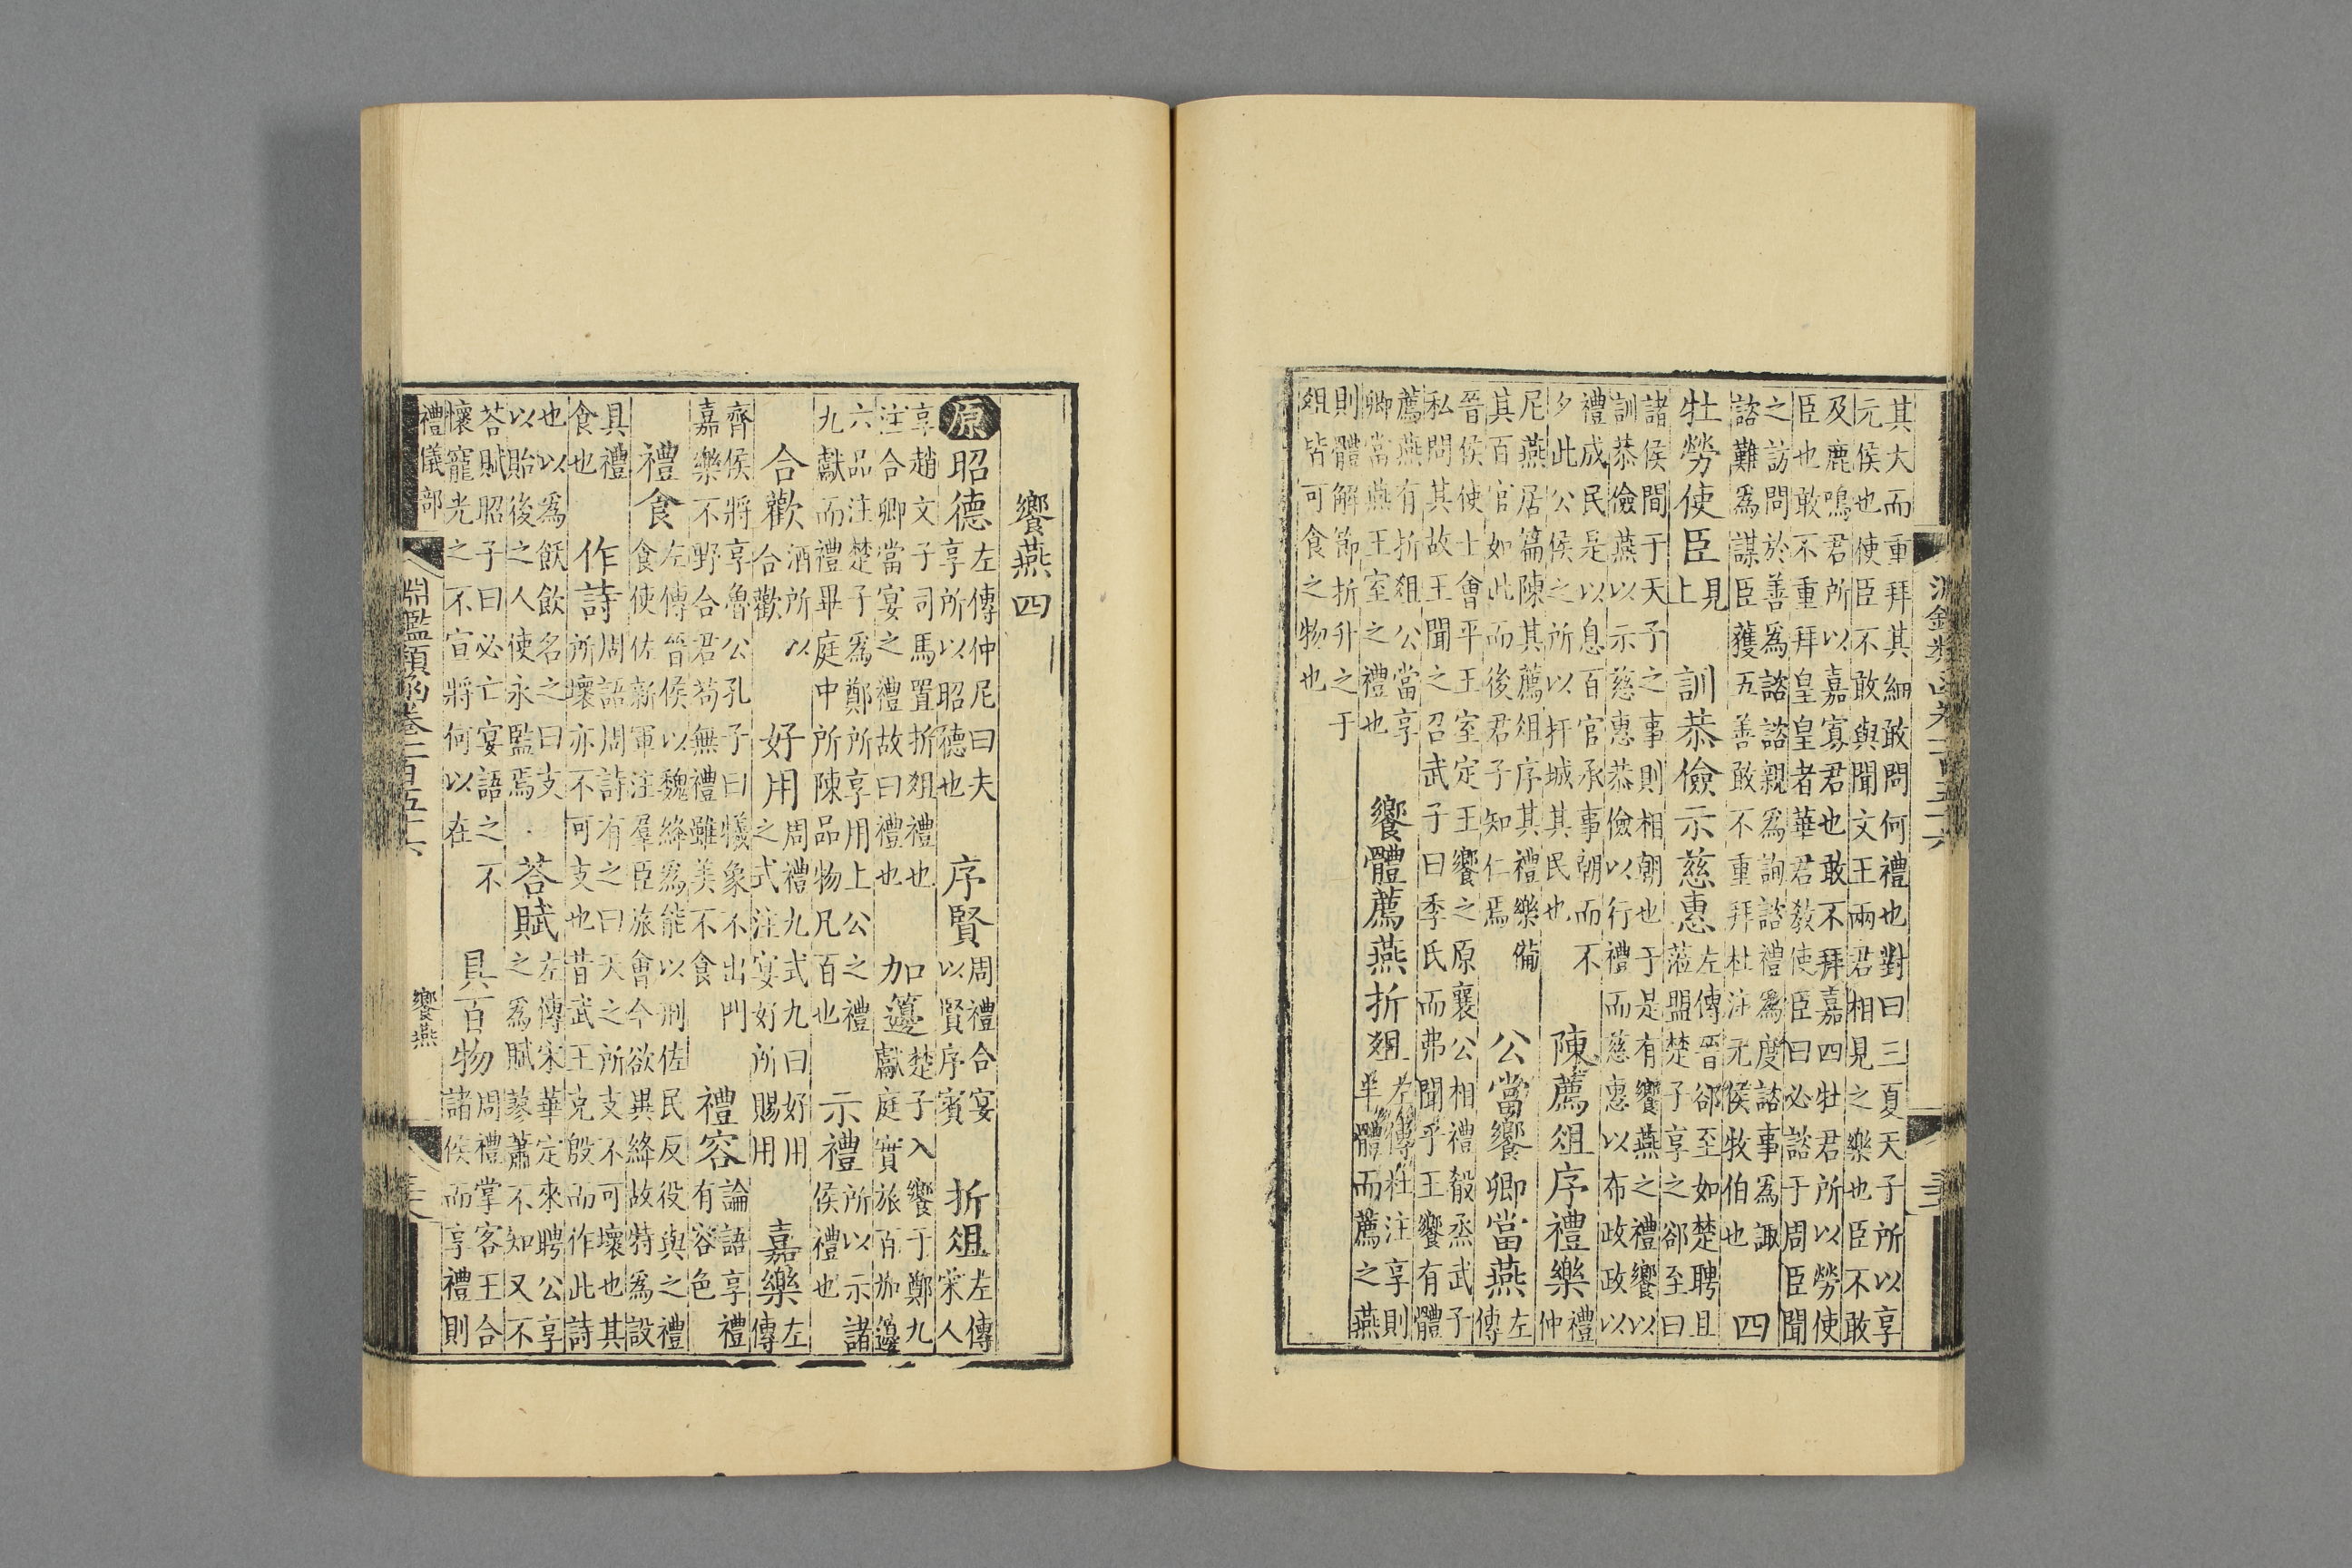 其大而重拜其細敢問何禮也對曰三夏天子所以享
元侯也使臣不敢與聞文王兩君相見之樂也臣不敢
及鹿鳴君所以嘉寡君也敢不拜嘉四牡君所以勞使
臣也敢不重拜皇皇者華君教使臣曰必諮于周臣聞
之訪問於善為諮諮親為詢諮禮為度諮事為諏
諮難為謀臣獲五善敢不重拜杜注元侯牧伯也 四
牡勞使臣 見上 訓恭儉示慈惠 左傳晉郤至如楚聘且蒞盟楚子享之郤至曰
諸侯間于天子之事則相朝也于是有饗燕之禮饗以
訓恭儉燕以示慈惠恭儉以行禮而慈惠以布政政以
禮成民是以息百官承事朝而不夕此公侯之所以扞城其民也 陳薦俎序禮樂 禮仲
尼燕居篇陳其薦俎序其禮樂備其百官如此而後君子知仁焉 公當饗卿當燕 左傳
晉侯使士會平王室定王饗之原襄公相禮殽烝武子
私問其故王聞之召武子曰季氏而弗聞乎王饗有體
薦燕有折俎公當享卿當燕王室之禮也 饗體薦燕折俎 左傳杜注享則半體而薦之燕
則體解節折升之于俎皆可食之物也
饗燕四
原 昭德 左傳仲尼曰夫享所以昭德也 序賢 周禮合宴以賢序賓 折俎 左傳宋人
享趙文子司馬置折俎禮也注合卿當宴之禮故曰禮也 加籩 楚子入饗于鄭九獻庭實旅百加籩
六品注楚子為鄭所享用上公之禮九獻而禮畢庭中所陳品物凡百也 示禮 所以示諸侯禮也
合歡 酒所以合歡 好用 周禮九式九曰好用之式注宴好所賜用 嘉樂 左傳
齊侯將享魯公孔子曰犧象不出門嘉樂不野合君苟無禮雖美不食 禮容 論語享禮有容色
禮食 左傳晉侯以魏絳為能以刑佐民反役與之禮食使佐新軍注羣臣旅會今欲異絳故特為設
具禮食也 作詩 周語周詩有之曰天之所支不可壞也其所壞亦不可支也昔武王克殷而作此詩
也以為飫飲名之曰支以貽後之人使永監焉 荅賦 左傳宋華定來聘公享之為賦蓼蕭不知又不
荅賦昭子曰必亡宴語之不懷寵光之不宣將何以在 具百物 周禮掌客王合諸侯而享禮則
禮儀部 淵鑑類函卷一百五十六 饗燕